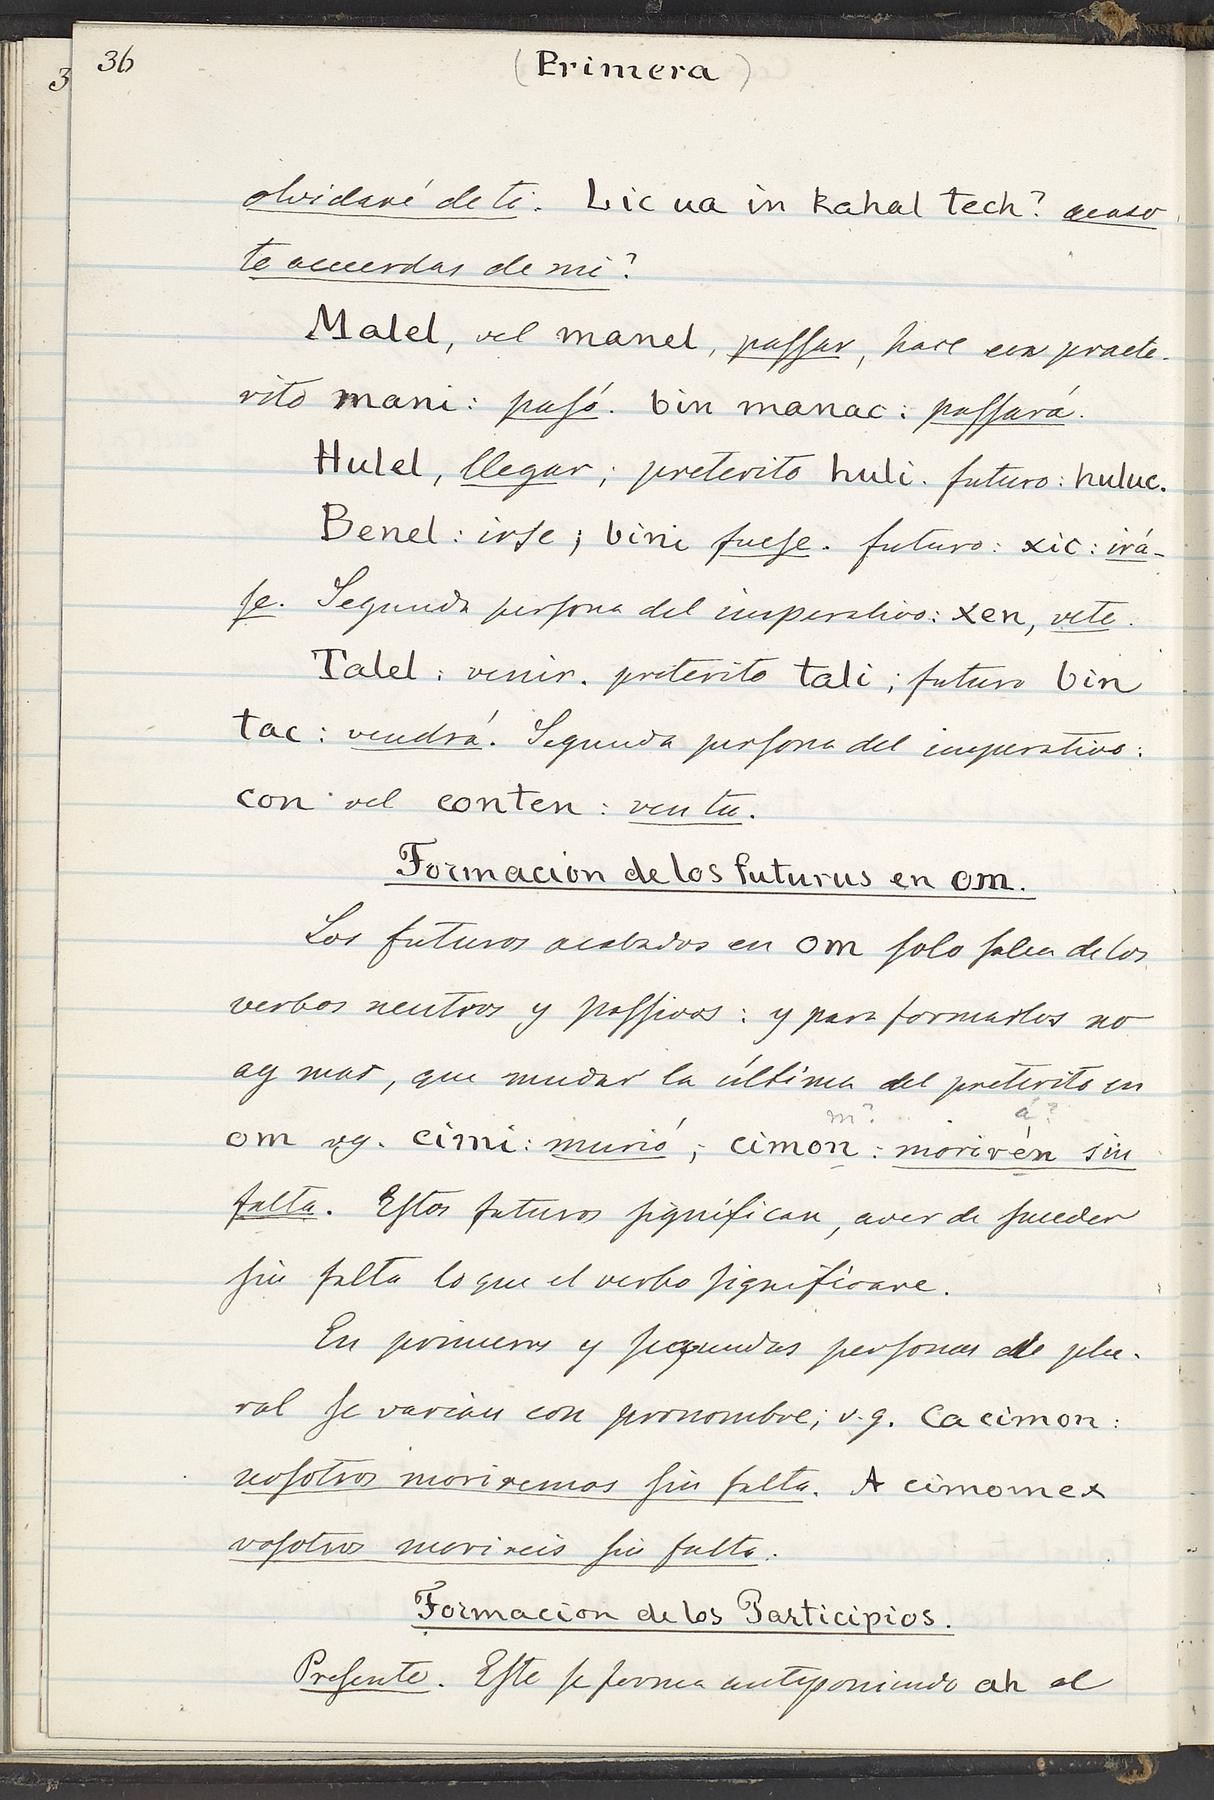 3
36
(Primera)
olvidaré de ti. Lic ua in kahal tech? acaso
te acuerdas de mi?
Malel, vel manel, paſſar, hace en preete-
rito mani: paſó. bin manac: paſſará.
Hulel, llegar; preterito huli. futuro: huluc.
Benel: irſe; bini fueſe. futuro: xic: irá-
ſe. Segunda perſona del imperativo: xen, vete.
Talel: venir. preterito tali; futuro bin
tac: vendrá. Segunda perſona del imperativo:
con vel conten: ven tu.
Formacion de los futurus en om.
Los futuros acabados en om ſolo ſalen de los
verbos neutros y paſſivos: y para formarlos no
ay mas, que mudar la última del preterito en
m? á?
om vg. cimi: murió; cimon: morirén sin
falta. Eſtos futuros ſignifican, aver de ſuceder
ſin falta lo que el verbo ſignificare.
En primeras y ſegundas perſonas de plu-
ral ſe varian con pronombre; v.g. Ca cimon:
noſotros moriremos ſin falta. A cimomex
voſotros morireis ſin falta.
Formacion de los Participios.
Preſente. Eſte ſe forma anteponiendo ah al